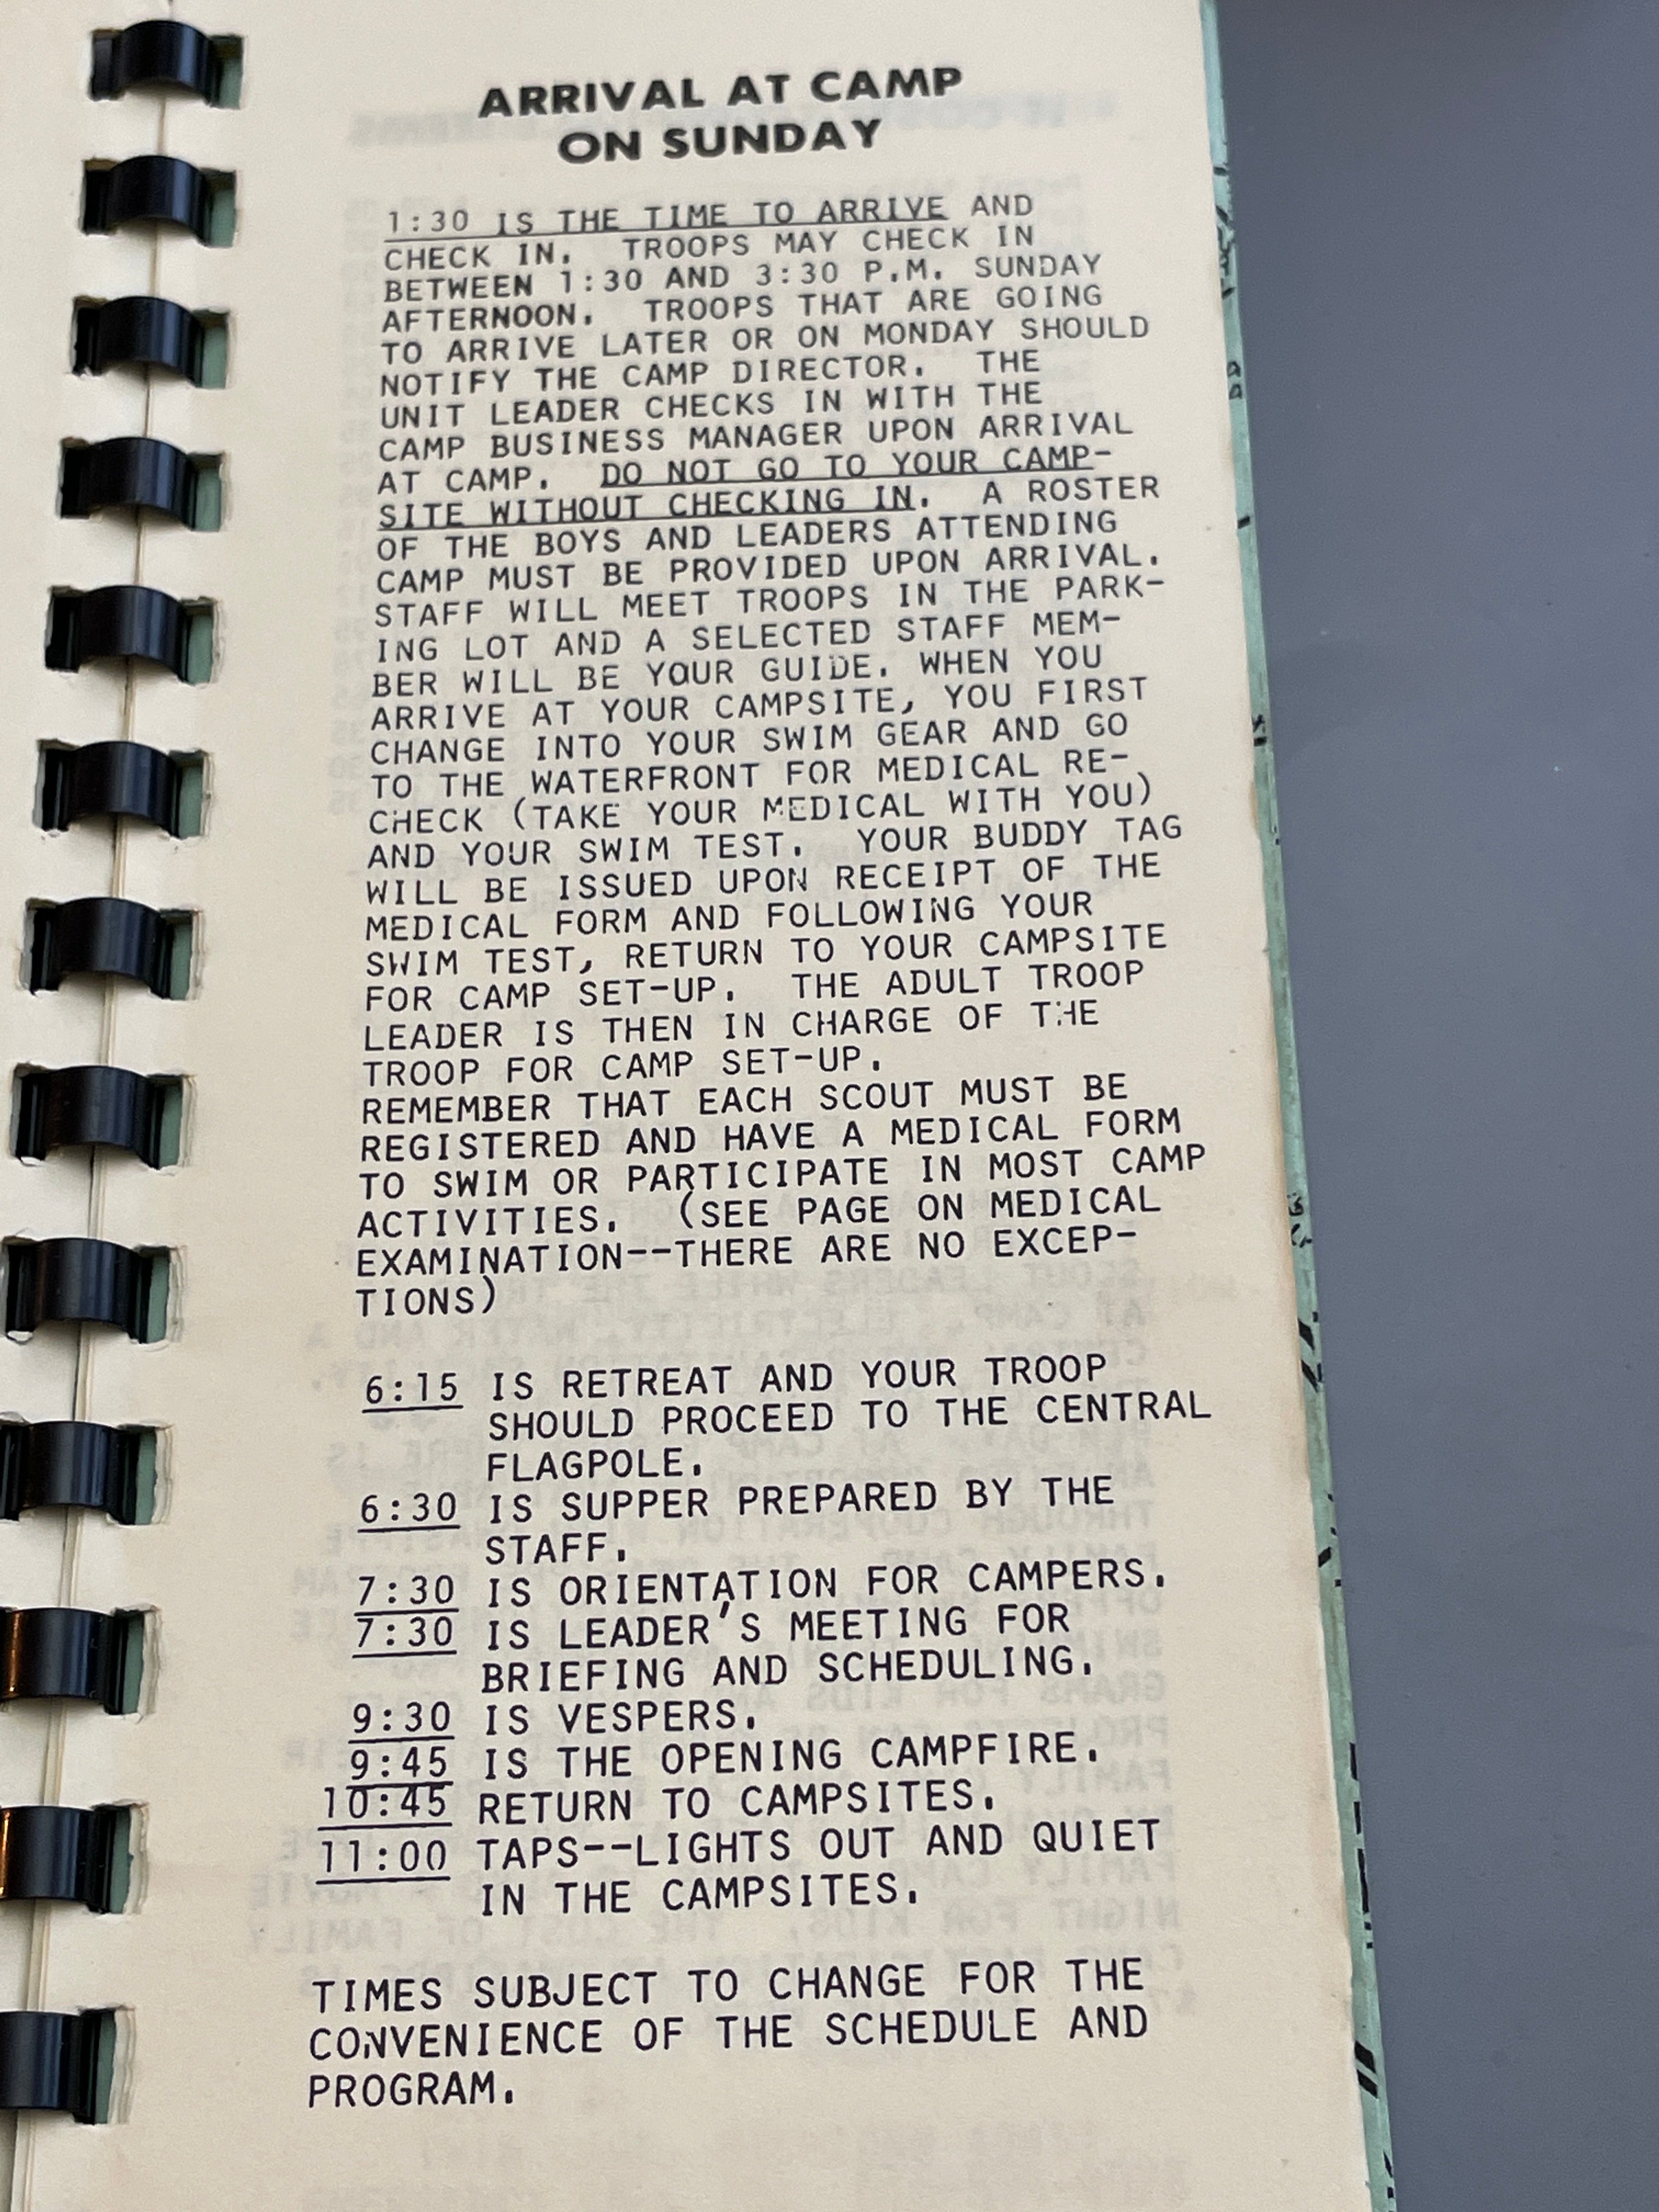 ARRIVAL AT CAMP
ON SUNDAY
1:30 IS THE TIME TO ARRIVE AND
CHECK IN. TROOPS MAY CHECK IN
BETWEEN 1:30 AND 3:30 P.M. SUNDAY
AFTERNOON. TROOPS THAT ARE GOING
TO ARRIVE LATER OR ON MONDAY SHOULD
NOTIFY THE CAMP DIRECTOR. THE
UNIT LEADER CHECKS IN WITH THE
CAMP BUSINESS MANAGER UPON ARRIVAL
AT CAMP. DO NOT GO TO YOUR CAMP-
SITE WITHOUT CHECKING IN. A ROSTER
OF THE BOYS AND LEADERS ATTENDING
CAMP MUST BE PROVIDED UPON ARRIVAL.
STAFF WILL MEET TROOPS IN THE PARK-
ING LOT AND A SELECTED STAFF MEM-
BER WILL BE YOUR GUIDE. WHEN YOU
ARRIVE AT YOUR CAMPSITE, YOU FIRST
CHANGE INTO YOUR SWIM GEAR AND GO
TO THE WATERFRONT FOR MEDICAL RE-
CHECK (TAKE YOUR MEDICAL WITH YOU)
AND YOUR SWIM TEST. YOUR BUDDY TAG
WILL BE ISSUED UPON RECEIPT OF THE
MEDICAL FORM AND FOLLOWING YOUR
SWIM TEST, RETURN TO YOUR CAMPSITE
FOR CAMP SET-UP. THE ADULT TROOP
LEADER IS THEN IN CHARGE OF THE
TROOP FOR CAMP SET-UP.
REMEMBER THAT EACH SCOUT MUST BE
REGISTERED AND HAVE A MEDICAL FORM
TO SWIM OR PARTICIPATE IN MOST CAMP
ACTIVITIES. (SEE PAGE ON MEDICAL
EXAMINATION--THERE ARE NO EXCEP-
TIONS)
6:15 IS RETREAT AND YOUR TROOP
SHOULD PROCEED TO THE CENTRAL
FLAGPOLE.
6:30 IS SUPPER PREPARED BY THE
STAFF.
7:30 IS ORIENTATION FOR CAMPERS.
7:30 IS LEADER'S MEETING FOR
BRIEFING AND SCHEDULING.
9:30 IS VESPERS.
9:45 IS THE OPENING CAMPFIRE.
10:45 RETURN TO CAMPSITES.
11:00 TAPS--LIGHTS OUT AND QUIET
IN THE CAMPSITES.
TIMES SUBJECT TO CHANGE FOR THE
CONVENIENCE OF THE SCHEDULE AND
PROGRAM.